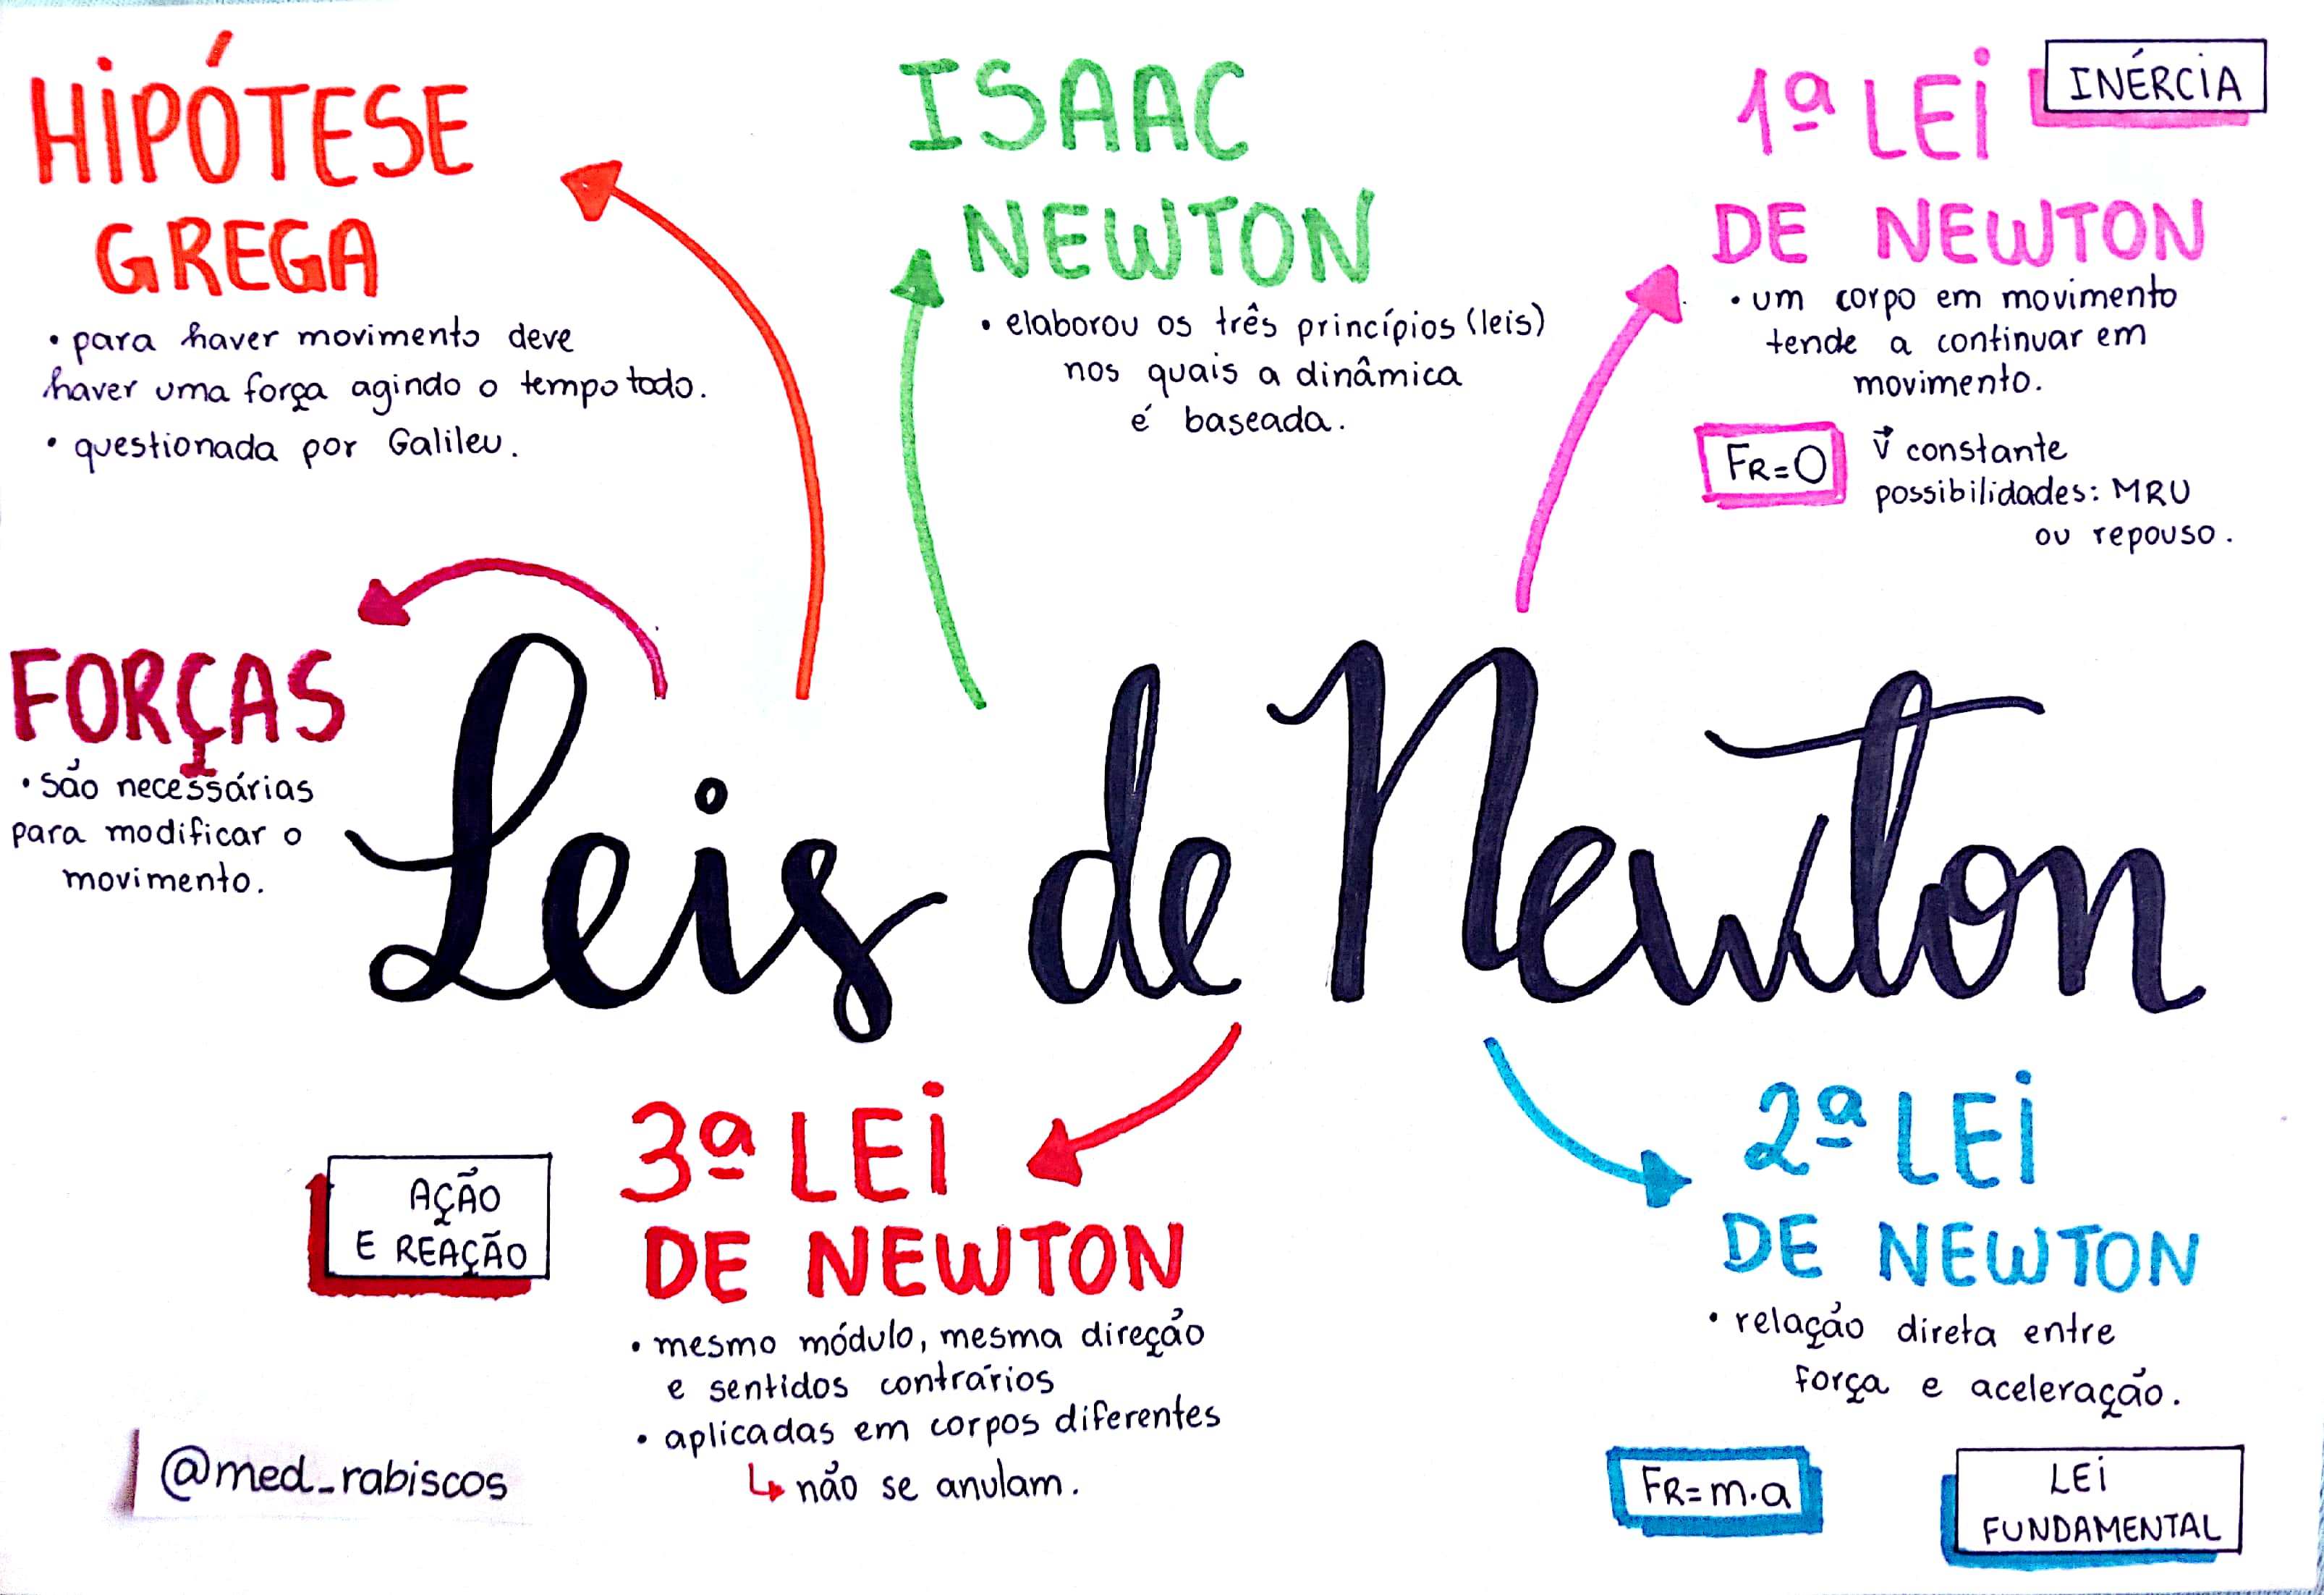 HIPÓTESE
GREGA
• para haver movimento deve
haver uma força agindo o tempo todo.
• questionada por Galileu.
ISAAC
NEWTON
• elaborou os três princípios (leis)
nos quais a dinâmica
é baseada.
1ª LEI
INÉRCIA
DE NEWTON
• um corpo em movimento
tende a continuar em
movimento.
FR=0
v⃗ constante
possibilidades: MRU
ou repouso.
FORÇAS
• são necessárias
para modificar o
movimento.
Leis de Newton
AÇÃO
E REAÇÃO
3ª LEI
DE NEWTON
• mesmo módulo, mesma direção
e sentidos contrários
• aplicadas em corpos diferentes
↳ não se anulam.
2ª LEI
DE NEWTON
• relação direta entre
força e aceleração.
FR=m.a
LEI
FUNDAMENTAL
@med_rabiscos